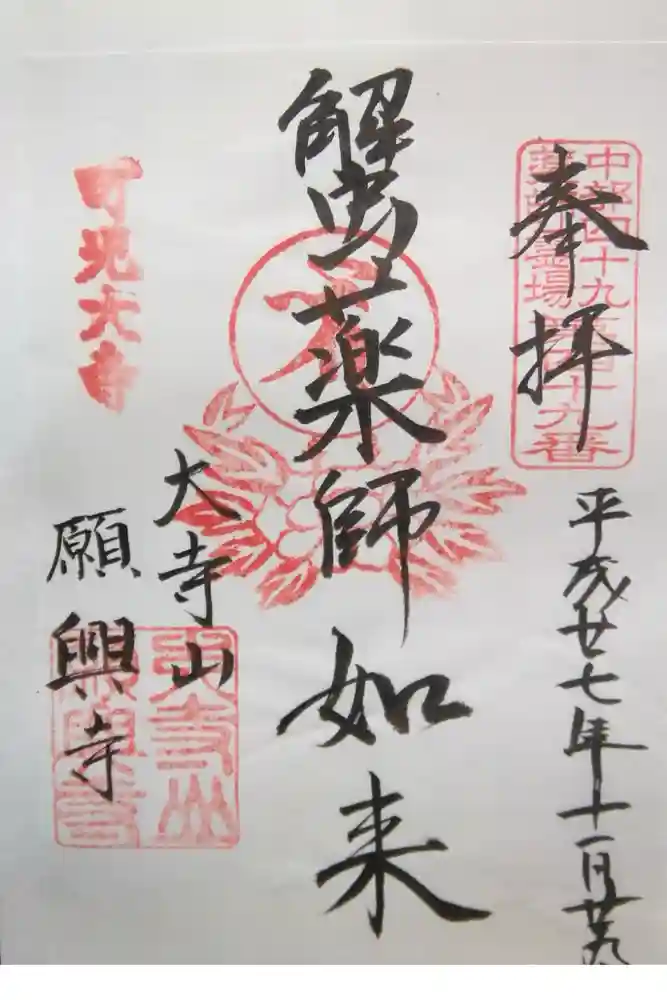 奉拝
中部四十九
薬師霊場
第四十九番
平成廿七年十一月廿九
蟹薬師如来
大寺山
願興寺
可児大寺